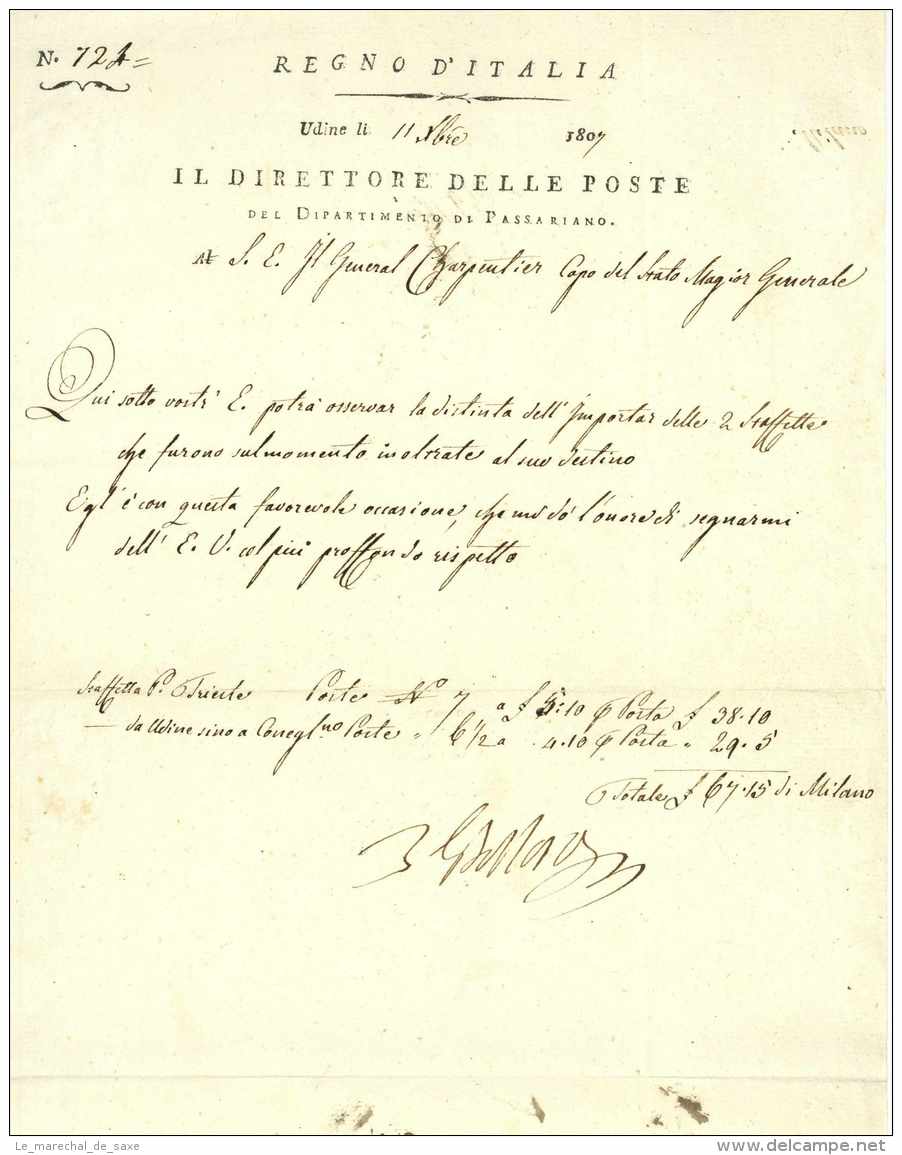 N. 724=
REGNO D'ITALIA
Udine li 11 Xbre 1807
IL DIRETTORE DELLE POSTE
DEL DIPARTIMENTO DI PASSARIANO.
Al S. E. Il General Charpentier Capo del Stato Magior Generale
Qui sotto vostr' E. potrà osservar la distinta dell' Importar delle 2 Staffette
che furono sul momento inoltrate al suo destino
Egl' è con questa favorevole occasione, che mi dò l'onore di segnarmi
dell' E. V. col più proffondo rispetto
Staffetta Pr. Trieste Poste No 7 a £ 5:10 Posta £ 38.10
— da Udine sino a Conegl.no Poste " 6 1/2 a 4.10 Posta " 29.5
Totale £ 67.15 di Milano
Le_marechal_de_saxe
delcampe.net